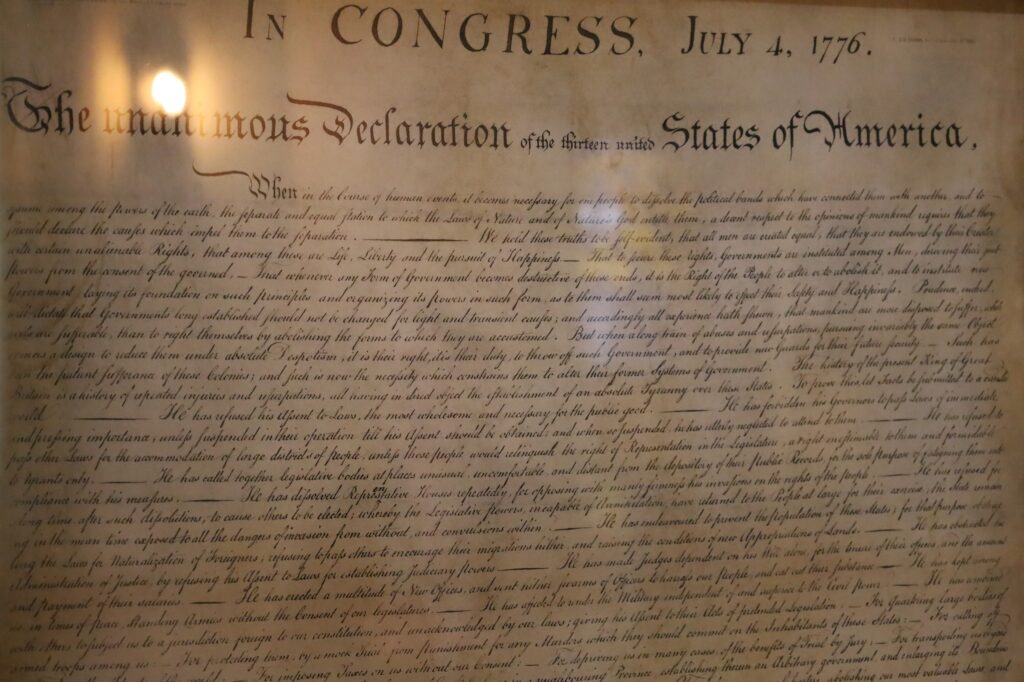 IN CONGRESS, JULY 4, 1776.
The unanimous Declaration of the thirteen united States of America,
When in the Course of human events, it becomes necessary for one people to dissolve the political bands which have connected them with another, and to
among the powers of the earth, the separate and equal station to which the Laws of Nature and of Nature's God entitle them, a decent respect to the opinions of mankind requires that they
should declare the causes which impel them to the separation. We hold these truths to be self-evident, that all men are created equal, that they are endowed by their Creator
with certain unalienable Rights, that among these are Life, Liberty and the pursuit of Happiness.— That to secure these rights, Governments are instituted among Men, deriving their just
powers from the consent of the governed, — That whenever any Form of Government becomes destructive of these ends, it is the Right of the People to alter or to abolish it, and to institute new
Government, laying its foundation on such principles and organizing its powers in such form, as to them shall seem most likely to effect their Safety and Happiness. Prudence, indeed,
will dictate that Governments long established should not be changed for light and transient causes; and accordingly all experience hath shewn, that mankind are more disposed to suffer, while
evils are sufferable, than to right themselves by abolishing the forms to which they are accustomed. But when a long train of abuses and usurpations, pursuing invariably the same Object
evinces a design to reduce them under absolute Despotism, it is their right, it is their duty, to throw off such Government, and to provide new Guards for their future security.— Such has
been the patient sufferance of these Colonies; and such is now the necessity which constrains them to alter their former Systems of Government. The history of the present King of Great
Britain is a history of repeated injuries and usurpations, all having in direct object the establishment of an absolute Tyranny over these States. To prove this, let Facts be submitted to a candid
world. He has refused his Assent to Laws, the most wholesome and necessary for the public good. He has forbidden his Governors to pass Laws of immediate
and pressing importance, unless suspended in their operation till his Assent should be obtained; and when so suspended, he has utterly neglected to attend to them. He has refused to
pass other Laws for the accommodation of large districts of people, unless those people would relinquish the right of Representation in the Legislature, a right inestimable to them and formidable
to tyrants only. He has called together legislative bodies at places unusual, uncomfortable, and distant from the depository of their public Records, for the sole purpose of fatiguing them into
compliance with his measures. He has dissolved Representative Houses repeatedly, for opposing with manly firmness his invasions on the rights of the people. He has refused for
long time, after such dissolutions, to cause others to be elected; whereby the Legislative powers, incapable of Annihilation, have returned to the People at large for their exercise; the State remain
ing in the mean time exposed to all the dangers of invasion from without, and convulsions within. He has endeavoured to prevent the population of these States; for that purpose obstruct
ing the Laws for Naturalization of Foreigners; refusing to pass others to encourage their migrations hither, and raising the conditions of new Appropriations of Lands. He has obstructed the
Administration of Justice, by refusing his Assent to Laws for establishing Judiciary powers. He has made Judges dependent on his Will alone, for the tenure of their offices, and the amount
and payment of their salaries. He has erected a multitude of New Offices, and sent hither swarms of Officers to harrass our people, and eat out their substance. He has kept among
us, in times of peace, Standing Armies without the Consent of our legislatures. He has affected to render the Military independent of and superior to the Civil power. He has combined
with others to subject us to a jurisdiction foreign to our constitution, and unacknowledged by our laws; giving his Assent to their Acts of pretended Legislation: — For Quartering large bodies of
armed troops among us: — For protecting them, by a mock Trial, from punishment for any Murders which they should commit on the Inhabitants of these States: — For cutting off
For imposing Taxes on us without our Consent: — For depriving us in many cases, of the benefits of Trial by Jury: — For transporting us beyond
neighbouring Province, establishing therein an Arbitrary government, and enlarging its Boundaries
abolishing our most valuable Laws, and